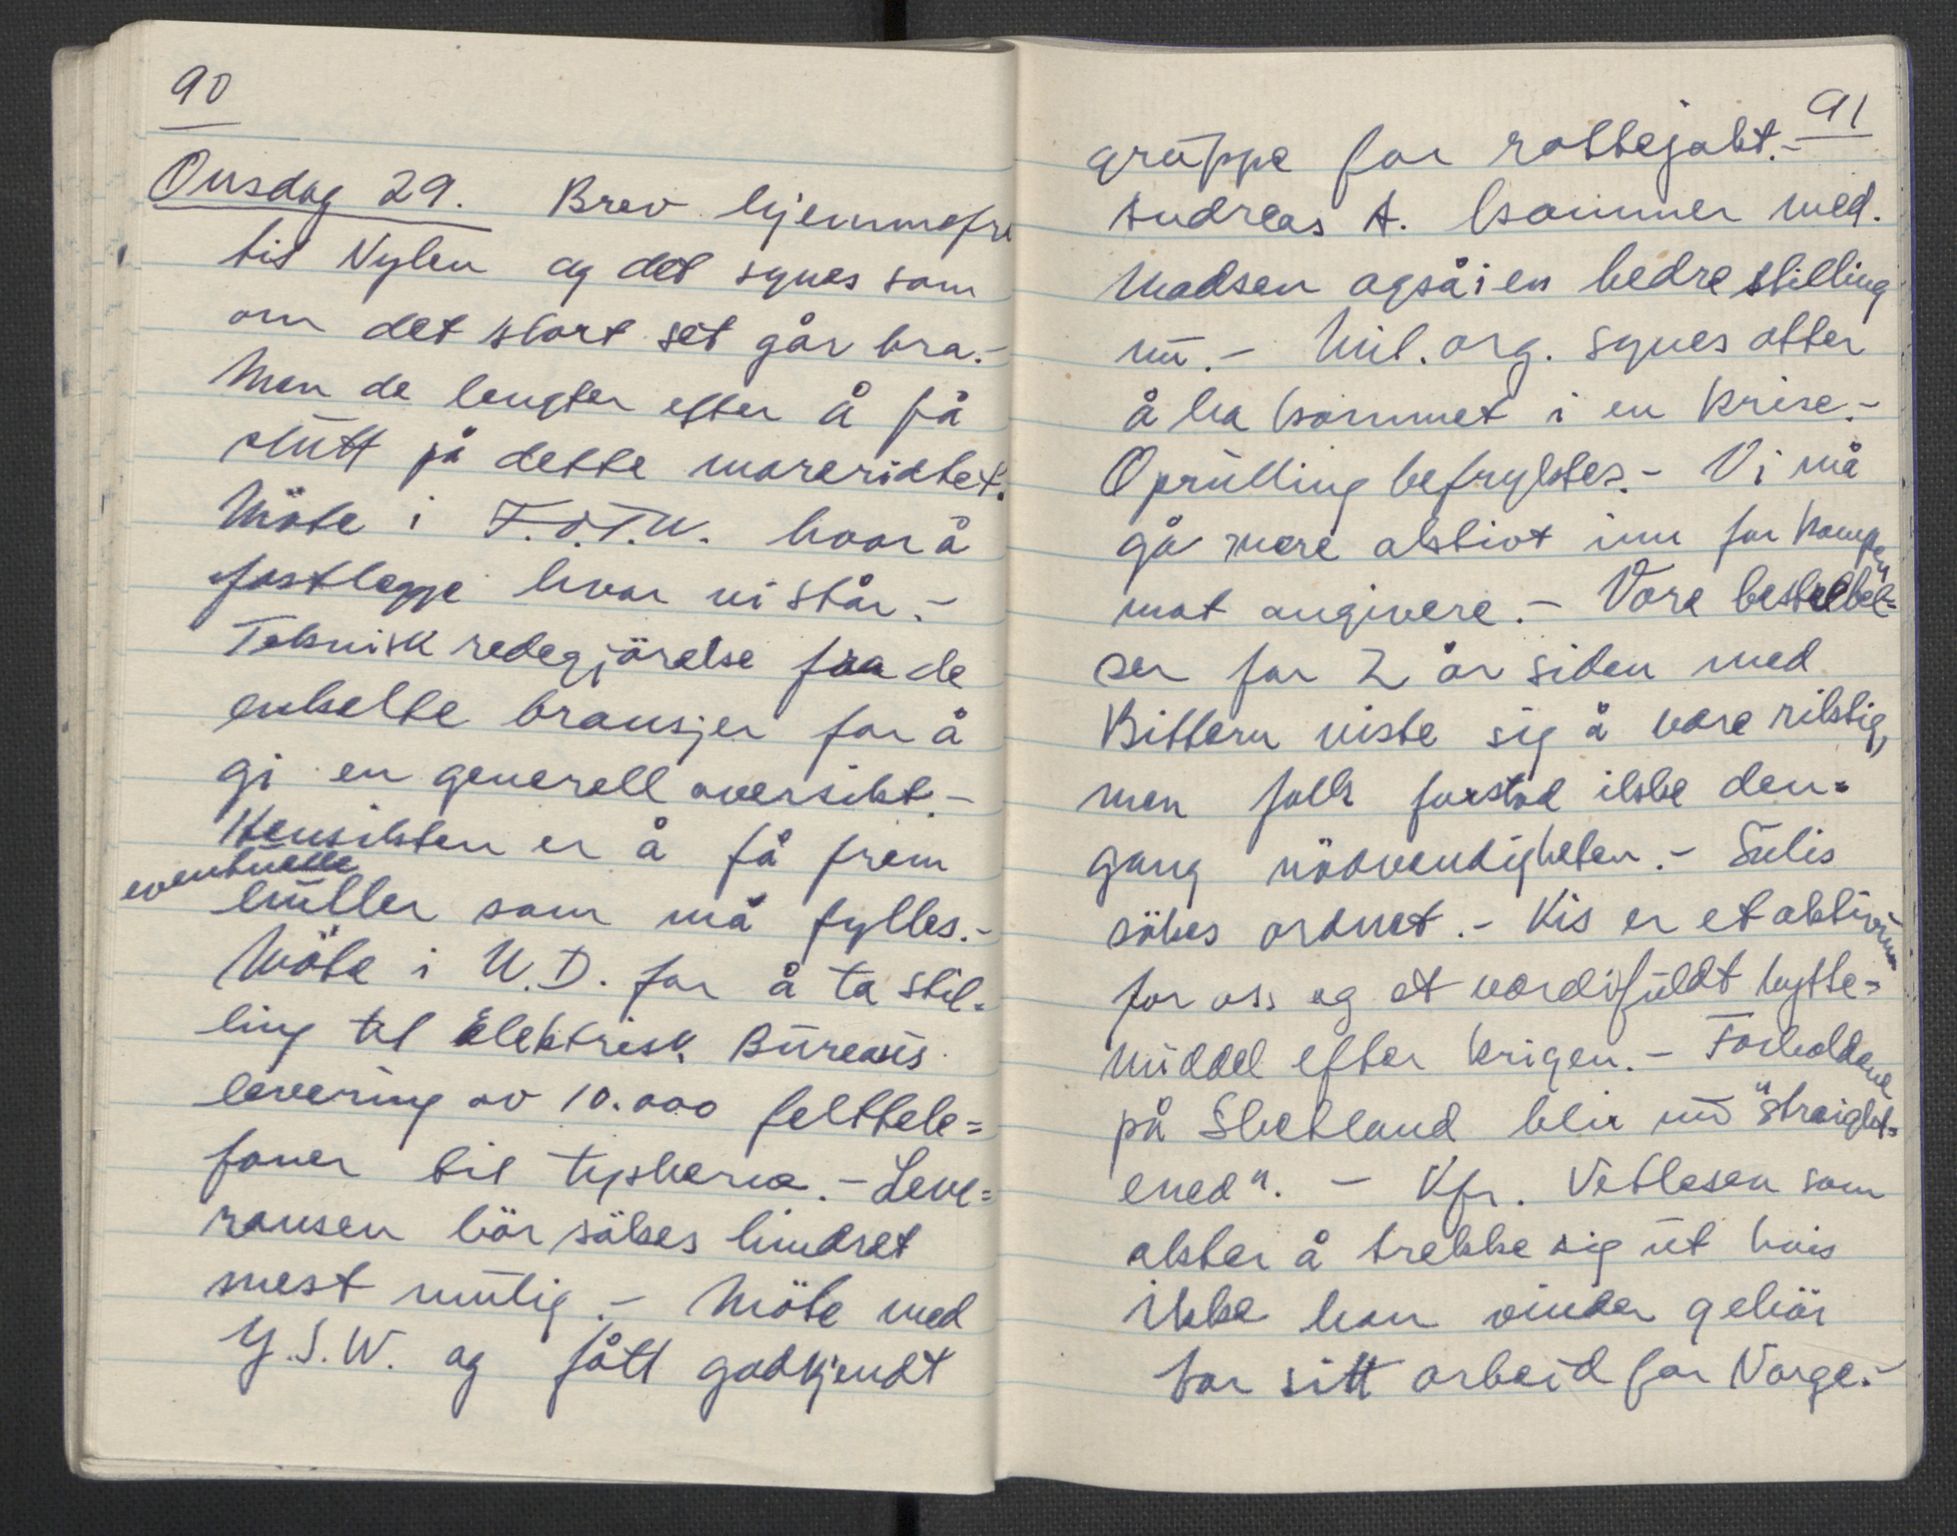 90
Onsdag 29. Brev hjemmefra
til Nylen og det synes som
om det stort set går bra.-
Men de lengter efter å få
slutt på dette mareridtet.
Möte i F.O.T.U. hvor å
fastlegge hvor vi står.-
Teknisk redegjörelse fra de
enkelte bransjer for å
gi en generell oversikt.-
Hensikten er å få frem
eventuelle
huller som må fylles.-
Möte i U.D. for å ta stil=
ling til Elektrisk Bureaus
levering av 10.000 felttele=
foner til tyskerne.- Leve=
ransen bör sökes hindret
mest mulig.- Möte med
Y.S.W. og fått godkjendt
91
gruppe for rottejakt.-
Andreas A. kommer med.
Madsen også i en bedre stilling
nu.- Mil.org. synes atter
å ha kommet i en krise.-
Oprulling befryktes.- Vi må
gå mere aktivt inn for kampen
mot angivere.- Våre bestrebel=
ser for 2 år siden med
Bittern viste sig å være riktig,
men folk forstod ikke den=
gang nödvendigheten.- Sulis
sökes ordnet.- Kis er et aktivum
for oss og et værdifuldt bytte=
middel efter krigen.- Forholdene
på Shetland blir nu "straight=
ened".- Kfr. Vetlesen som
akter å trekke sig ut hvis
ikke han vinder gehör
for sitt arbeid for Norge.-